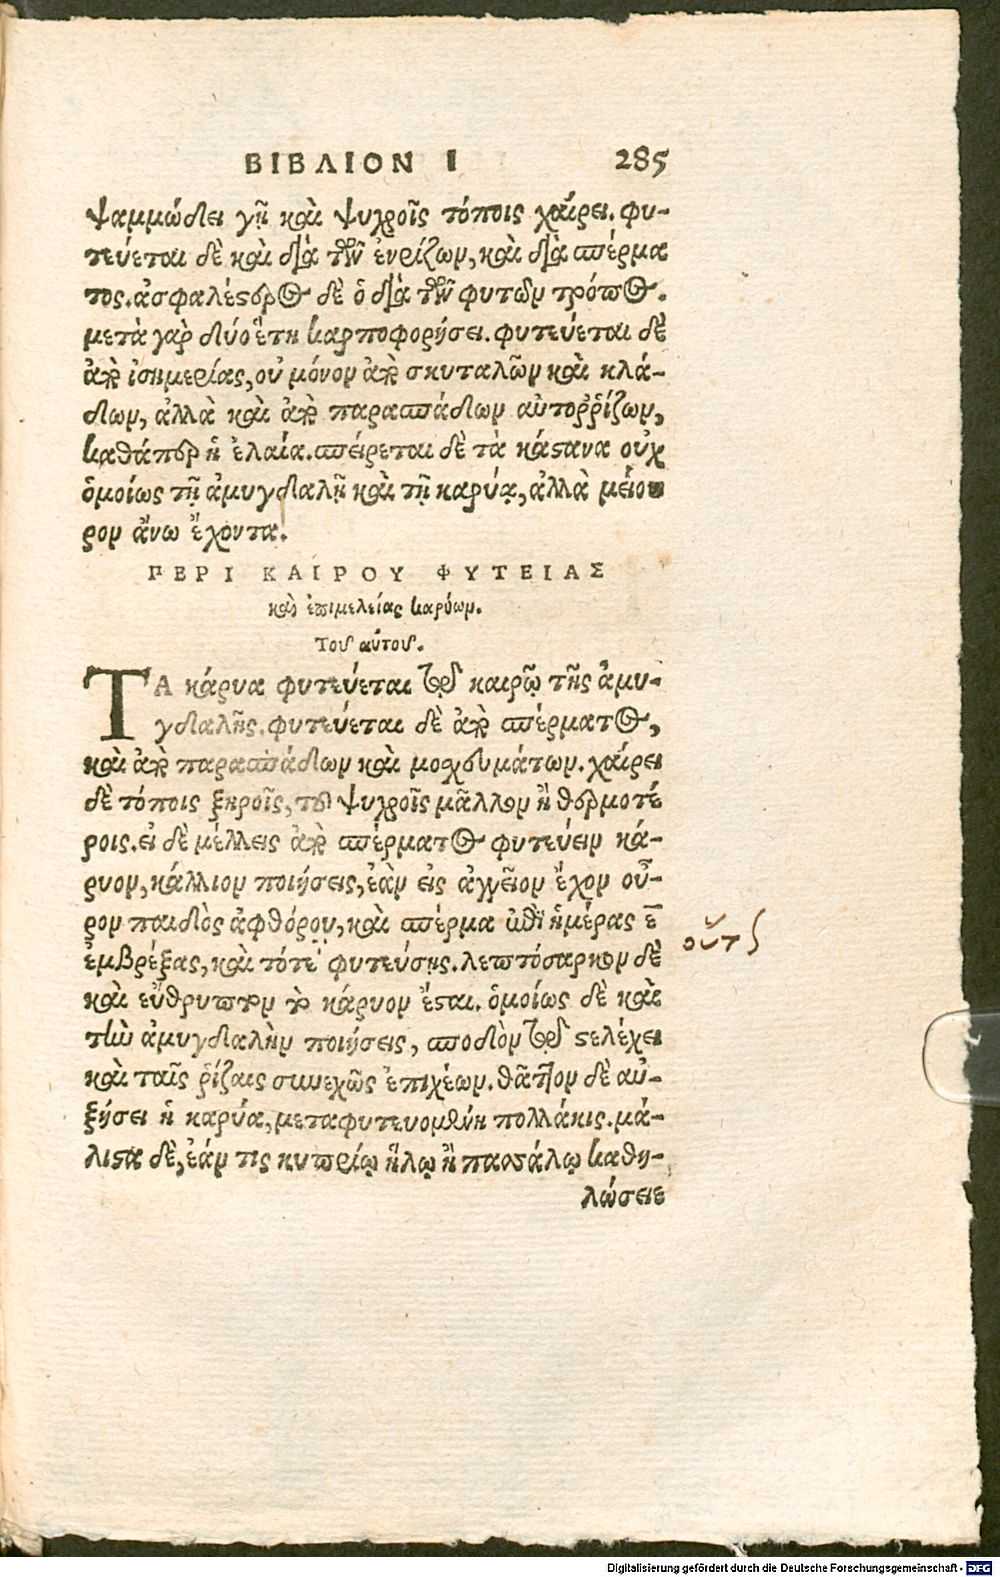 ΒΙΒΛΙΟΝ Ι 285
ψαμμώδει γῇ καὶ ψυχροῖς τόποις χαίρει. φυ-
τεύεται δὲ καὶ διὰ τῶν ἐνρίζων, καὶ διὰ σπέρμα
τος. ἀσφαλέστερος δὲ ὁ διὰ τῶν φυτῶν τρόπος.
μετὰ γὰρ δύο ἔτη καρποφορήσει. φυτεύεται δὲ
ἀπὸ ἰσημερίας, οὐ μόνον ἀπὸ σκυταλῶν καὶ κλά-
δων, ἀλλὰ καὶ ἀπὸ παρασπάδων αὐτοῤῥίζων,
καθάπερ ἡ ἐλαία. σπείρεται δὲ τὰ κάστανα οὐχ
ὁμοίως τῇ ἀμυγδαλῇ καὶ τῇ καρύᾳ, ἀλλὰ μείου
ρον ἄνω ἔχοντα.
ΠΕΡΙ ΚΑΙΡΟΥ ΦΥΤΕΙΑΣ
καὶ ἐπιμελείας καρύων.
Τοῦ αὐτοῦ.
ΤΑ κάρυα φυτεύεται τῷ καιρῷ τῆς ἀμυ-
γδαλῆς. φυτεύεται δὲ ἀπὸ σπέρματος,
καὶ ἀπὸ παρασπάδων καὶ μοσχευμάτων. χαίρει
δὲ τόποις ξηροῖς, τοῖ ψυχροῖς μᾶλλον ἢ θερμοτέ
ροις. εἰ δὲ μέλλεις ἀπὸ σπέρματος φυτεύειν κά-
ρυον, κάλλιον ποιήσεις, ἐὰν εἰς ἀγγεῖον ἔχον οὖ-
ρον παιδὸς ἀφθόρου, καὶ σπέρμα ἐπὶ ἡμέρας ε̅
ἐμβρέξας, καὶ τότε φυτεύσῃς. λεπτόσαρκον δὲ
καὶ εὔθρυπτον τὸ κάρυον ἔσται. ὁμοίως δὲ καὶ
τὴν ἀμυγδαλὴν ποιήσεις, σποδὸν τῷ στελέχει
καὶ ταῖς ῥίζαις συνεχῶς ἐπιχέων. θᾶττον δὲ αὐ-
ξήσει ἡ καρύα, μεταφυτευομένη πολλάκις. μά-
λιστα δὲ, ἐάν τις κυπρίῳ ἥλῳ ἢ πασσάλῳ καθη-
λώσειε
Digitalisierung gefördert durch die Deutsche Forschungsgemeinschaft - DFG